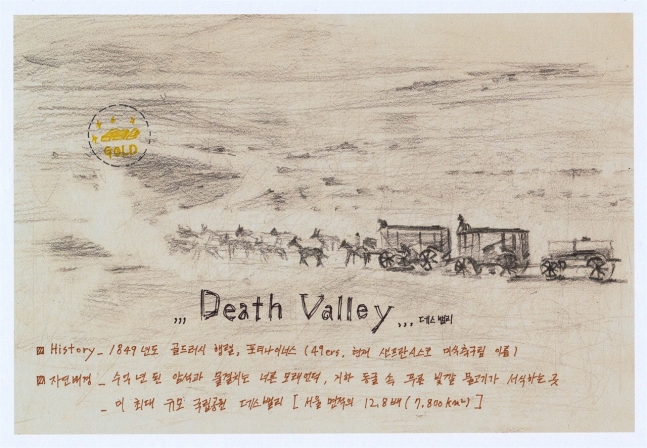 GOLD
,,, Death Valley ,,, 데스밸리
History _ 1849년도 골드러시 행렬, 포티나이너스 (49ers, 현재 샌프란시스코 미식축구팀 이름)
자연배경 _ 수억 년 된 암석과 물결치는 너른 모래언덕, 지하 동굴 속 푸른 빛깔 물고기가 서식하는 곳
_ 미 최대 규모 국립공원 데스밸리 [ 서울 면적의 12.8배 (7,800km²) ]